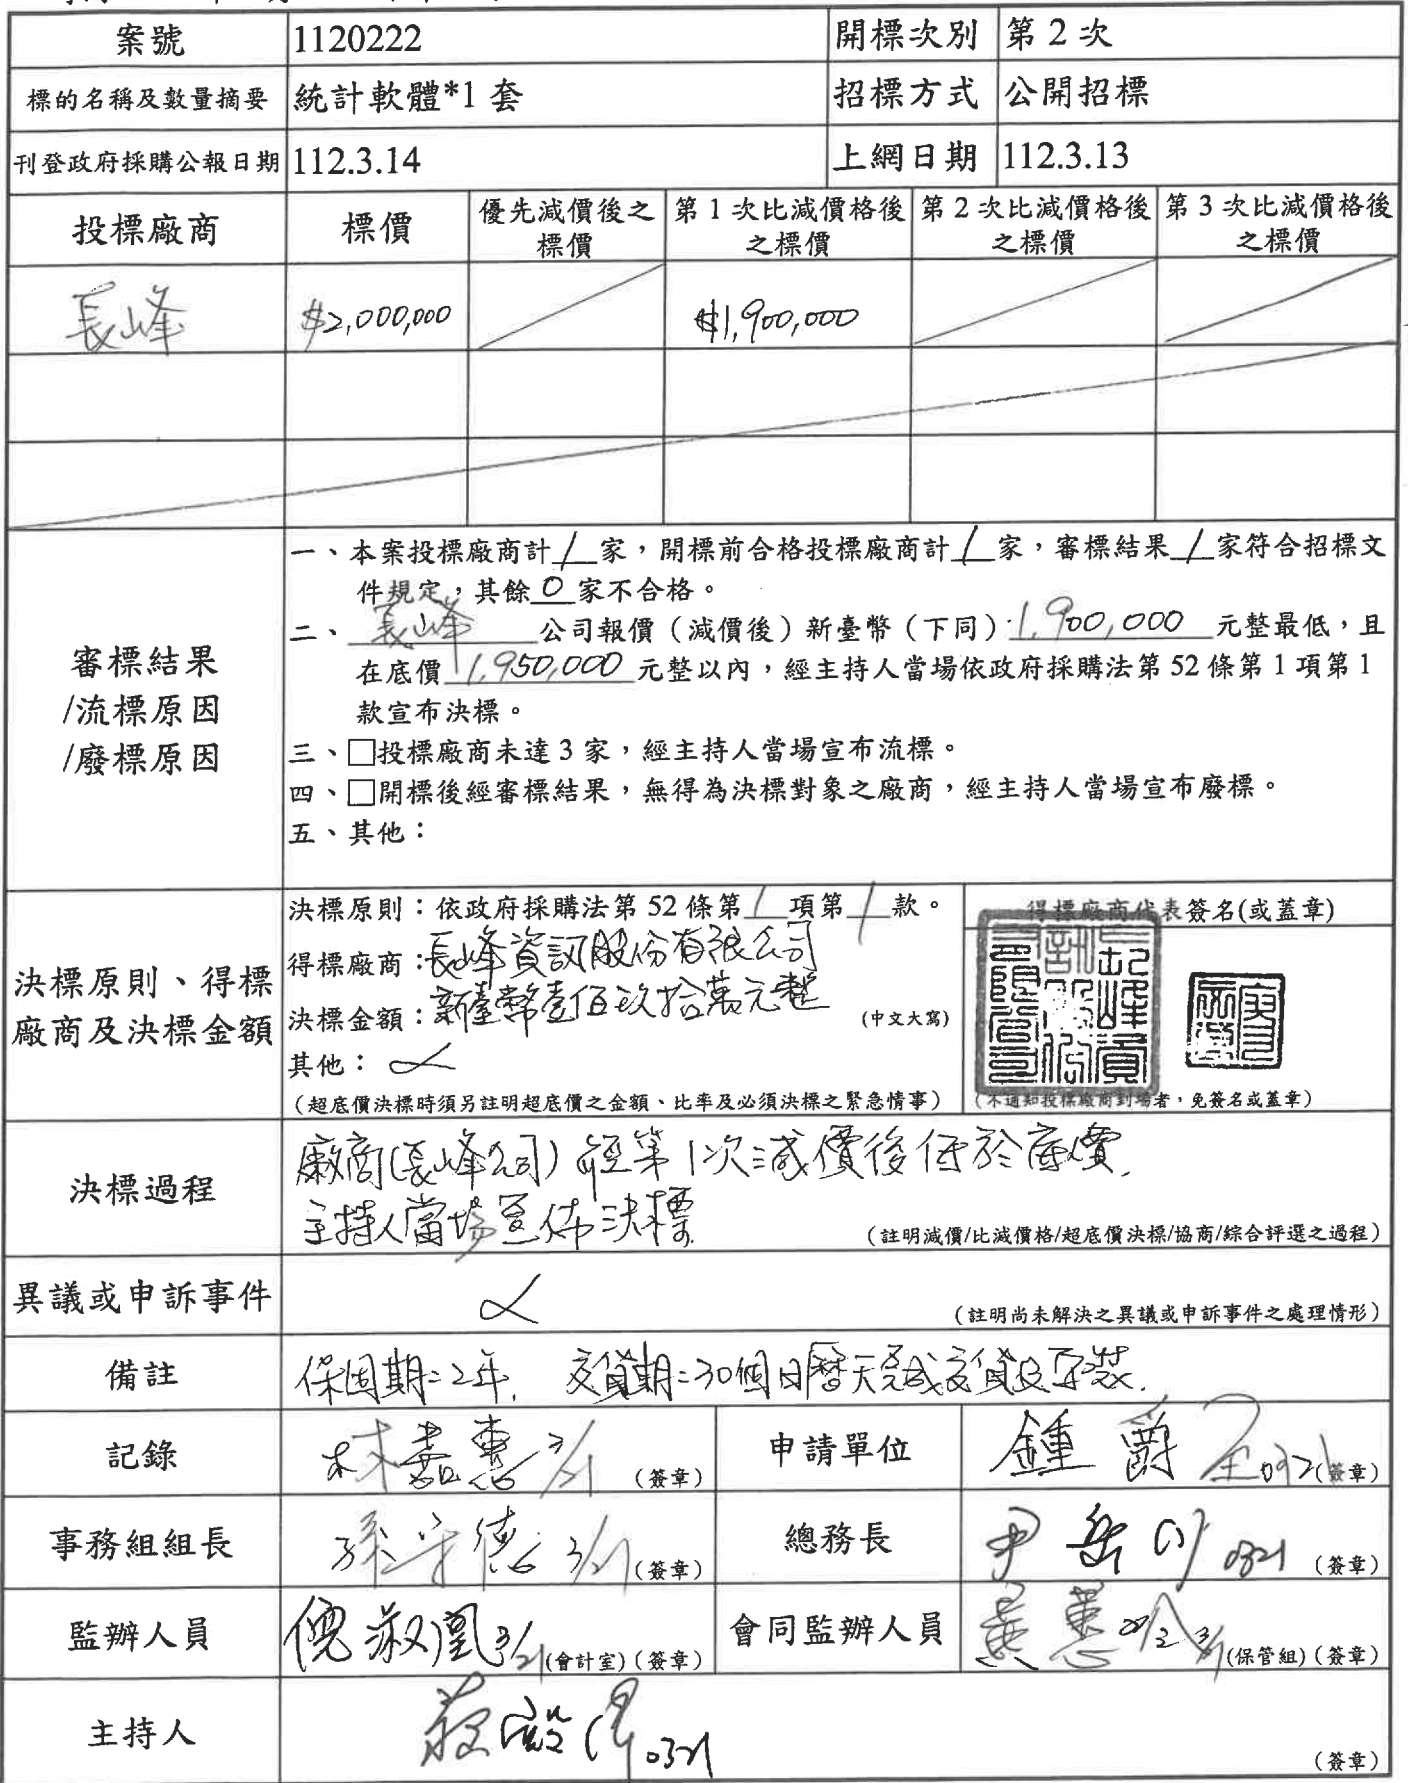 案號 1120222 開標次別 第 2 次
標的名稱及數量摘要 統計軟體*1 套 招標方式 公開招標
刊登政府採購公報日期 112.3.14 上網日期 112.3.13
投標廠商 標價 優先減價後之標價 第 1 次比減價格後之標價 第 2 次比減價格後之標價 第 3 次比減價格後之標價
長峰 $2,000,000 $1,900,000
審標結果
/流標原因
/廢標原因
一、本案投標廠商計 1 家，開標前合格投標廠商計 1 家，審標結果 1 家符合招標文
件規定，其餘 0 家不合格。
二、長峰 公司報價（減價後）新臺幣（下同）1,900,000 元整最低，且
在底價 1,950,000 元整以內，經主持人當場依政府採購法第 52 條第 1 項第 1
款宣布決標。
三、□投標廠商未達 3 家，經主持人當場宣布流標。
四、□開標後經審標結果，無得為決標對象之廠商，經主持人當場宣布廢標。
五、其他：
決標原則、得標
廠商及決標金額
決標原則：依政府採購法第 52 條第 1 項第 1 款。
得標廠商：長峰資訊股份有限公司
決標金額：新臺幣壹佰玖拾萬元整 (中文大寫)
其他：
（超底價決標時須另註明超底價之金額、比率及必須決標之緊急情事）
得標廠商代表簽名(或蓋章)
長峰資訊股份有限公司
（不通知投標廠商到場者，免簽名或蓋章）
決標過程
廠商(長峰公司)經第1次減價後低於底價,
主持人當場宣佈決標
（註明減價/比減價格/超底價決標/協商/綜合評選之過程）
異議或申訴事件
（註明尚未解決之異議或申訴事件之處理情形）
備註 保固期:2年, 交貨期:30個日曆天完成交貨及安裝.
記錄 林嘉惠 3/21 (簽章) 申請單位 鍾爵 0321 (簽章)
事務組組長 孫守德 3/21 (簽章) 總務長 尹 0321 (簽章)
監辦人員 倪淑凰 3/21 (會計室) (簽章) 會同監辦人員 黃蕙 3/21 (保管組) (簽章)
主持人 0321 (簽章)